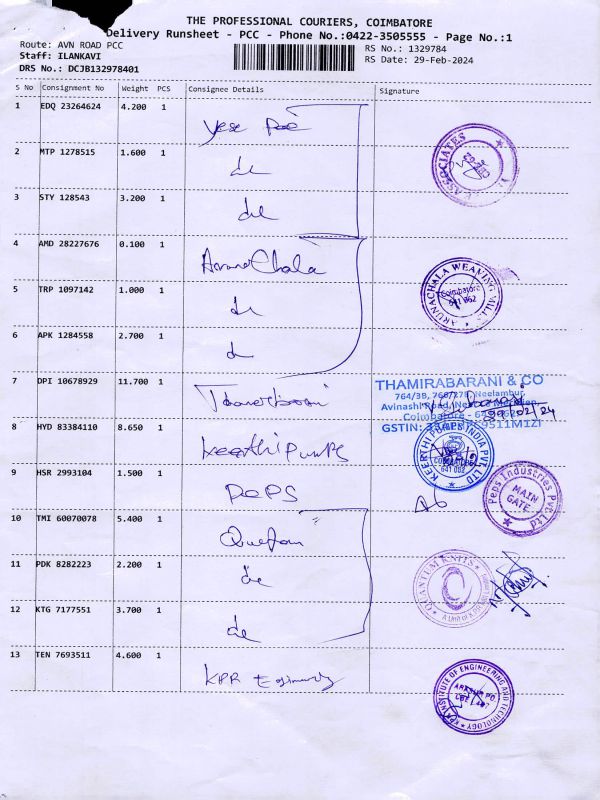 THE PROFESSIONAL COURIERS, COIMBATORE
Delivery Runsheet - PCC - Phone No.:0422-3505555 - Page No.:1
Route: AVN ROAD PCC
RS No.: 1329784
Staff: ILANKAVI
RS Date: 29-Feb-2024
DRS No.: DCJB132978401
S No Consignment No Weight PCS Consignee Details Signature
1 EDQ 23264624 4.200 1
ASSOCIATES
2 MTP 1278515 1.600 1 do
3 STY 128543 3.200 1 do
4 AMD 28227676 0.100 1 ArunaChala
5 TRP 1097142 1.000 1 do
ARUNACHALA WEAVING MILLS
Coimbatore
641 062
6 APK 1284558 2.700 1 do
7 DPI 10678929 11.700 1
THAMIRABARANI & CO
Neelambur,
Avinashi Road,
Coimbatore
GSTIN:
29/02/24
8 HYD 83384110 8.650 1 keerthi Pumps
KEERTHI PUMPS INDIA PVT. LTD
COIMBATORE
641 062
9 HSR 2993104 1.500 1 PePS
Peps Industries Pvt. Ltd
MAIN
GATE
10 TMI 60070078 5.400 1
11 PDK 8282223 2.200 1 do
QUANTUM KNITS
12 KTG 7177551 3.700 1 do
13 TEN 7693511 4.600 1 KPR
KPR INSTITUTE OF ENGINEERING AND TECHNOLOGY
ARASUR PO